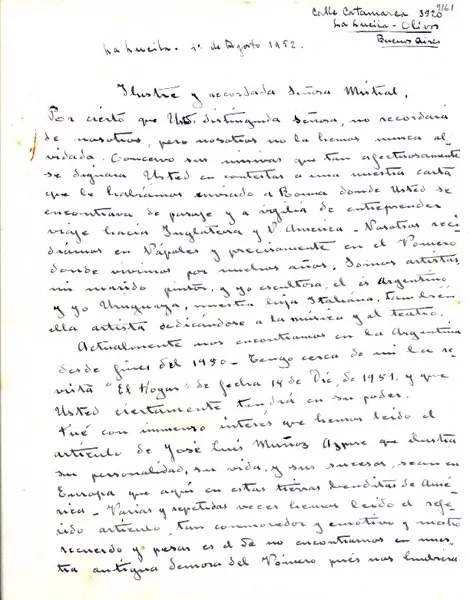 9161
Calle Catamarca 3920
La Lucila - Olivos
Buenos Aires
La Lucila. 1º de Agosto 1952.
Ilustre y recordada Señora Mistral,
Por cierto que Ud. distinguida señora, no recordará
de nosotros, pero nosotros no la hemos nunca ol-
vidada. Conservo sus misivas que tan afectuosamente
se dignara Usted en contestar a una nuestra carta
que le habíamos enviado a Roma donde Usted se
encontrava de pasaje y a vigilia de entreprender
viaje hacia Inglaterra y N. America - Nosotros resi-
díamos en Nápoles y precisamente en el Vomero
donde vivimos por muchos años. Somos artistas,
mi marido pintor, y yo escultora, el es Argentino
y yo Uruguaya, nuestra hija Italiana, también
ella artista dedicándose a la música y al teatro.
Actualmente nos encontramos en la Argentina
desde fines del 1950 - Tengo cerca de mi la re-
vista "El Hogar" de fecha 14 de Dic, de 1951, y que
Usted ciertamente tendrá en su poder.
Fué con inmenso interés que hemos leido el
artículo de José Luis Muñoz Azpire que ilustra
su personalidad, su vida, y sus sucesos, sean en
Europa que aquí en estas tierras benditas de Amé-
rica - Varias y repetidas veces hemos leido el refe-
rido artículo, tan conmovedor y emotivo y nuestro
recuerdo y pesar es el de no encontrarnos en nues-
tra antigua demora del Vómero pués nos hubiera